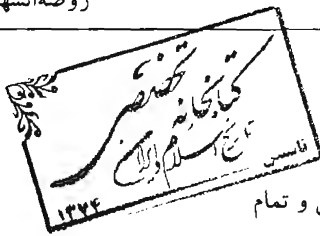 روضه‌الشه
کتابخانه تخصصی
تاریخ اسلام و ایران
تاسیس
۱۳۷۴
و تمام